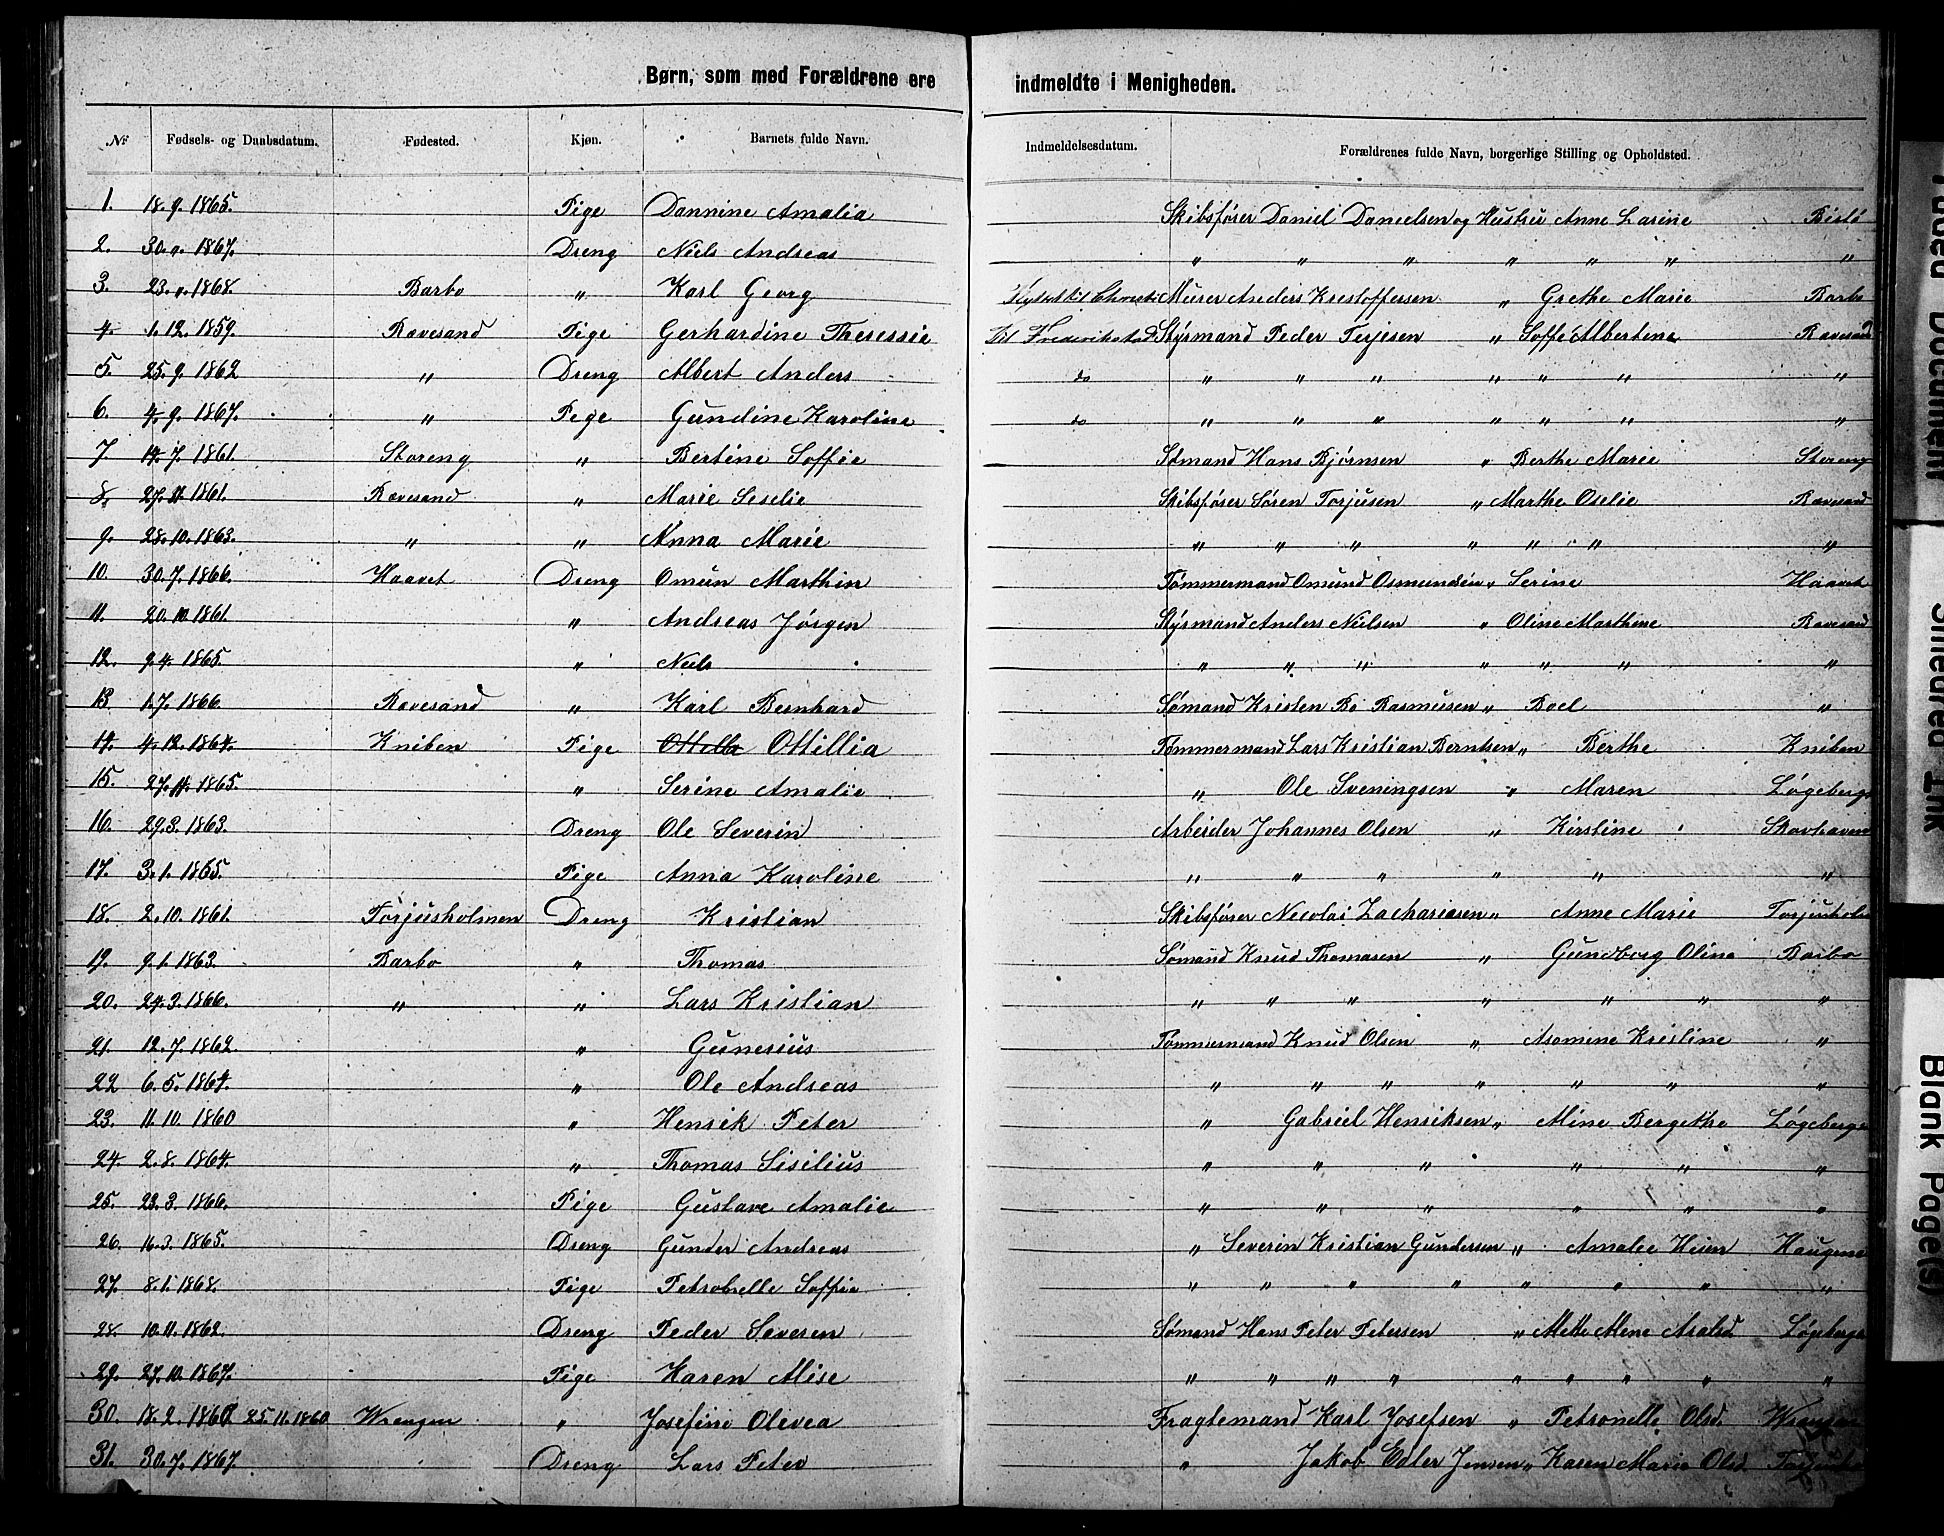 Børn, som med Forældrene ere indmeldte i Menigheden.
№ Fødsels- og Daabsdatum. Fødested. Kjøn. Barnets fulde Navn. Indmeldelsesdatum. Forældrenes fulde Navn, borgerlige Stilling og Opholdsted.
1. 18. 9. 1865. Pige Dannine Amalia Skibsfører Daniel Danielsen og Hustru Anne Larine
2. 30. „ 1867. Dreng Niels Andreas „ „ „ „ „ „ „
3. 23. „ 1868. Barbo „ Karl Georg Murer Anders Kristoffersen „ Grethe Marie Barbo
4. 1. 12. 1859. Rævesand Pige Gerhardine Theressie til Frederikstad Styrmand Peder Terjesen „ Soffe Albertene Rævesand
5. 25. 9. 1862 „ Dreng Albert Anders do „ „ „ „ „ „ „
6. 4. 9. 1867. „ Pige Gundine Karoline do „ „ „ „ „ „ „
7. 14. 7. 1861. Storeng „ Bertine Soffie Sømand Hans Bjørnsen „ Berthe Marie Storeng
8. 27. 11. 1861. Rævesand „ Marie Seselie Skibsfører Søren Torjusen „ Marthe Oselie Rævesand
9. 28. 10. 1863. „ „ Anna Marie „ „ „ „ „ „ „
10. 30. 7. 1866. Haavet Dreng Omun Marthin Tømmermand Omund Osmundsen „ Serine Haavet
11. 20. 10. 1861. „ Andreas Jørgen Styrmand Anders Nielsen „ Oline Marthine Rævesand
12. 9. 4. 1865. „ Niels „ „ „ „ „ „ „
13 1. 7. 1866 Rævesand „ Karl Bernhard Sømand Kristen Bo Rasmusen „ Boel „
14. 4. 12. 1864. Kniben Pige Ottilla Ottillia Tømmermand Lars Kristian Berntsen „ Berthe Kniben
15. 27. 11. 1865. „ Serine Amalie „ Ole Sveningsen „ Maren Løgeberg
16. 29. 3. 1863. Dreng Ole Severin Arbeider Johannes Olsen „ Kirstine
17. 3. 1. 1865. Pige Anna Karoline „ „ „ „ „ „
18. 2. 10. 1861. Torjusholmen Dreng Kristian Skibsfører Nicolai Zachariasen „ Anne Marie
19. 9. 1. 1863. Barbo „ Thomas Sømand Knud Thomasen „ Gundborg Olina Barbo
20. 24. 3. 1866. „ „ Lars Kristian „ „ „ „ „ „ „
21. 12. 7. 1862. „ Gunerius Tømmermand Knud Olsen „ Asomine Kristine „
22 6. 5. 1864. „ Ole Andreas „ „ „ „ „ „ „
23. 11. 10. 1860 „ Henrik Peter „ Gabriel Henriksen „ Mine Bergethe Løgeberg
24. 2. 8. 1864. „ Thomas Sisilius „ „ „ „ „ „
25. 23. 3. 1866. Pige Gustave Amalie „ „ „ „ „ „
26. 16. 3. 1865. Dreng Gunder Andreas „ Severin Kristian Gundersen „ Amalie
27. 8. 1. 1868. Pige Petrobelle Soffie „ „ „ „ „ „ „ „
28. 10. 11. 1862. Dreng Peder Severen Sømand Hans Peter Petersen „ Mette Mene Løgeberg
29. 27. 10. 1867. Pige Karen Alise „ „ „ „ „ „ „ „ „
30. 18. 2. 1860 25. 11. 1860 Wrengen „ Josefine Olivea Fragtemand Karl Josefsen „ Petronelle Olsd.
31. 30. 7. 1867. Dreng Lars Peter „ Jakob Edler Jensen „ Karen Marie Olsd.
Faded Document
Smeared Ink
Blank Page(s)